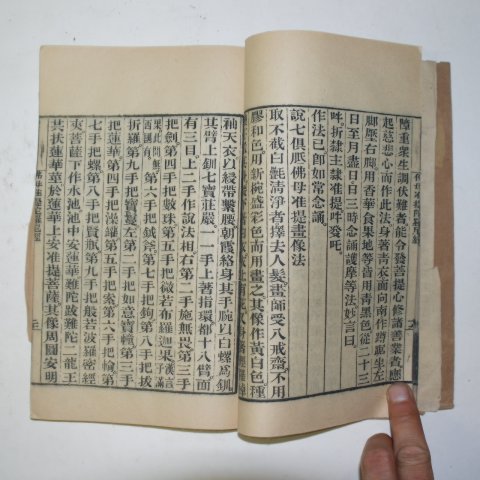 障重衆生調伏難者能令發菩提心修諸善業者應
起慈悲心而作此法身著青衣面向南作蹲踞坐左
脚壓右脚用香華食果地等皆用青黑色從二十三
日至月盡日日三時念誦護摩等法妙言曰
唵折隸主隸准提吽癹吒
作法已卽如常念誦
說七俱胝佛母准提畫像法
取不截白氎淸淨者擇去人髮畫師受八戒齋不用
膠和色用新椀盛彩色南用畫之其像作黃白色種
袖天衣以綬帶繫腰朝霞絡身其手腕以白螺爲釧
其臂上釧七寶莊嚴一一手上著指環都十八臂面
有三目上二手作說法相右第二手施無畏第三手
把劍第四手把數珠第五手把微若布羅迦果漢言子滿果此間無西國有第六手把鉞斧第七手把鉤第八手把拔
折羅第九手把寶鬘左第二手把如意寶幢第三手
把蓮華第四手把澡罐第五手把索第六手把輪第
七手把螺第八手把賢瓶第九手把般若波羅密經
夾菩薩下作水池池中安蓮華難陀跋難陀二龍王
共扶蓮華莖於蓮華上安准提菩薩其像周圍安明